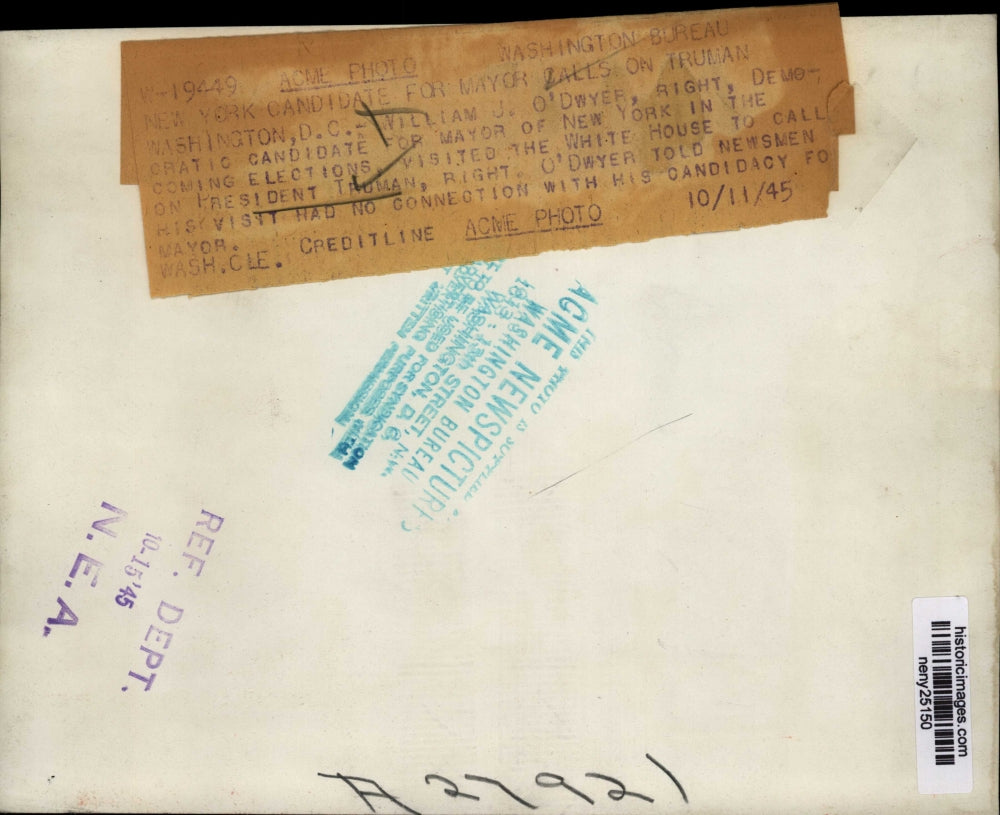 WASHINGTON BUREAU
W-19449 ACME PHOTO
NEW YORK CANDIDATE FOR MAYOR CALLS ON TRUMAN
WASHINGTON, D.C.- WILLIAM J. O'DWYER, RIGHT, DEMO-
CRATIC CANDIDATE FOR MAYOR OF NEW YORK IN THE
COMING ELECTIONS, VISITED THE WHITE HOUSE TO CALL
ON PRESIDENT TRUMAN, RIGHT. O'DWYER TOLD NEWSMEN
HIS VISIT HAD NO CONNECTION WITH HIS CANDIDACY FO
MAYOR. 10/11/45
WASH.CLE. CREDITLINE ACME PHOTO
THIS PHOTO IS
ACME NEWSPICTURES
WASHINGTON BUREAU
13th STREET, N.W.
WASHINGTON, D. C.
TO BE USED FOR SYNDICATION
ADVERTISING PURPOSES
WRITTEN
REF. DEPT.
10-15'45
N. E. A.
historicimages.com
neny25150
A 27921